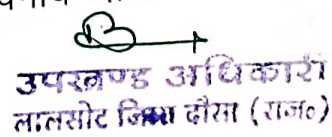 उपखण्ड अधिकारी
लालसोट जिला दौसा (राज०)